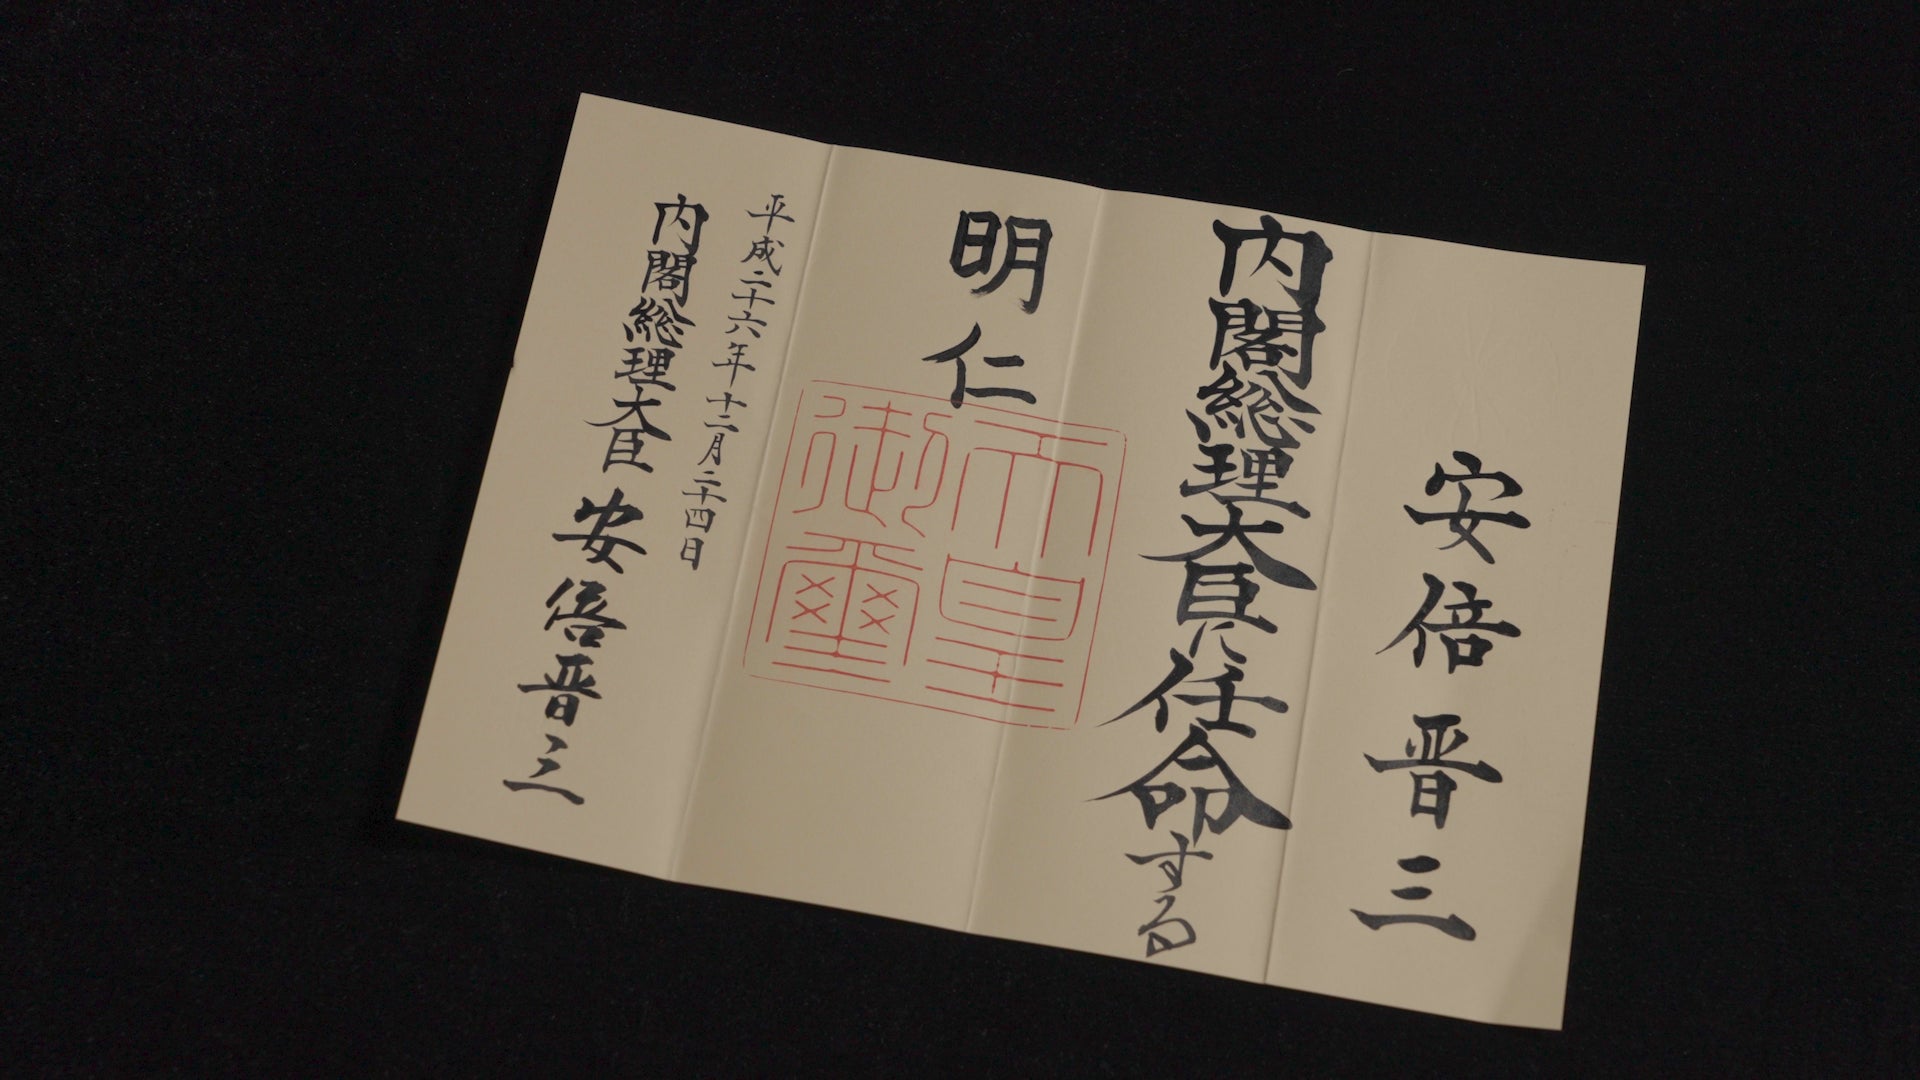 安倍晋三
内閣総理大臣に任命する
明仁
天皇
御璽
平成二十六年十二月二十四日
内閣総理大臣 安倍晋三